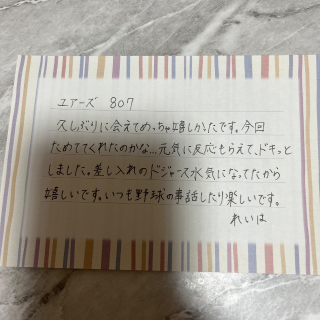 ユアーズ 807
久しぶりに会えてめっちゃ嬉しかったです。今回
ためててくれたのかな...元気に反応もらえて、ドキッと
しました。差し入れのドジャース水気になってたから
嬉しいです。いつも野球の事話したり楽しいです。
れいは